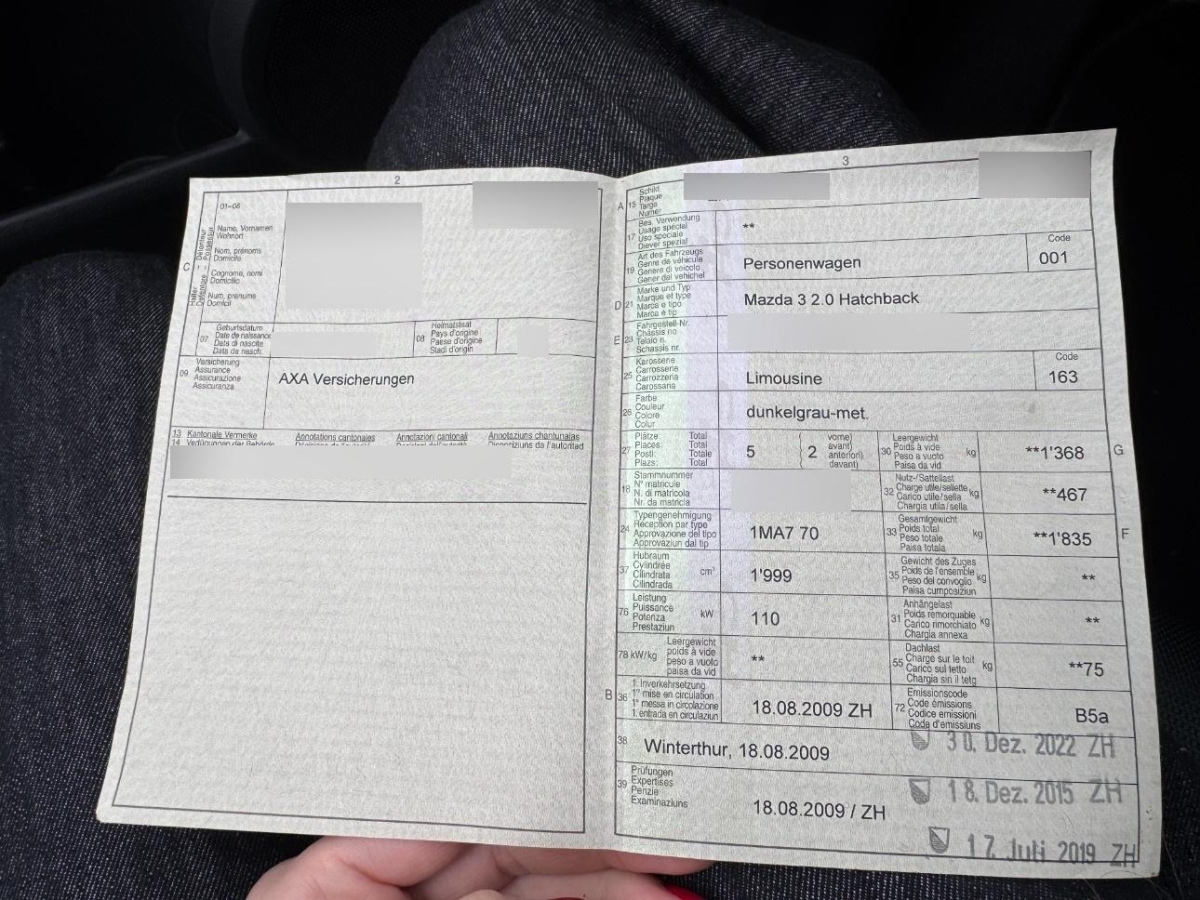 2
01–06
C
Name, Vornamen
Wohnort
Nom, prénoms
Domicile
Cognome, nomi
Domicilio
Num, prenums
Domicil
07
Geburtsdatum
Date de naissance
Data di nascita
Data da nasch.
08
Heimatstaat
Pays d'origine
Paese d'origine
Stadi d'origin
09
Versicherung
Assurance
Assicurazione
Assicuranza
AXA Versicherungen
13 Kantonale Vermerke Annotations cantonales Annotazioni cantonali Annotaziuns chantunalas
14 Verfügungen der Behörde
3
A 15
Schild
Plaque
Targa
Numer
17
Bes. Verwendung
Usage spécial
Uso speciale
Diever spezial
**
19
Art des Fahrzeugs
Genre de véhicule
Genere di veicolo
Gener dal vehichel
Personenwagen
Code
001
D 21
Marke und Typ
Marque et type
Marca e tipo
Marca e tip
Mazda 3 2.0 Hatchback
E 23
Fahrgestell-Nr.
Châssis no
Telaio n.
Schassis nr.
25
Karosserie
Carrosserie
Carrozzeria
Carossaria
Limousine
Code
163
26
Farbe
Couleur
Colore
Colur
dunkelgrau-met.
27
Plätze: Total
Places: Total
Posti: Totale
Plazs: Total
5
2
vorne)
avant)
anteriori)
davant)
30
Leergewicht
Poids à vide
Peso a vuoto
Paisa da vid
kg
**1'368
G
18
Stammnummer
N° matricule
N. di matricola
Nr. da matricla
32
Nutz-/Sattellast
Charge utile/sellette
Carico utile/sella
Chargia utila/sella
kg
**467
24
Typengenehmigung
Réception par type
Approvazione del tipo
Approvaziun dal tip
1MA7 70
33
Gesamtgewicht
Poids total
Peso totale
Paisa totala
kg
**1'835
F
37
Hubraum
Cylindrée
Cilindrata
Cilindrada
cm³
1'999
35
Gewicht des Zuges
Poids de l'ensemble
Peso del convoglio
Paisa cumposiziun
kg
**
76
Leistung
Puissance
Potenza
Prestaziun
kW
110
31
Anhängelast
Poids remorquable
Carico rimorchiato
Chargia annexa
kg
**
78 kW/kg
Leergewicht
poids à vide
peso a vuoto
paisa da vid
**
55
Dachlast
Charge sur le toit
Carico sul tetto
Chargia sin il tetg
kg
**75
B 36
1. Inverkehrsetzung
1re mise en circulation
1a messa in circolazione
1. entrada en circulaziun
18.08.2009 ZH
72
Emissionscode
Code émissions
Codice emissioni
Code d'emissiuns
B5a
38
Winterthur, 18.08.2009
30. Dez. 2022 ZH
39
Prüfungen
Expertises
Perizie
Examinaziuns
18.08.2009 / ZH
18. Dez. 2015 ZH
17. Juli 2019 ZH